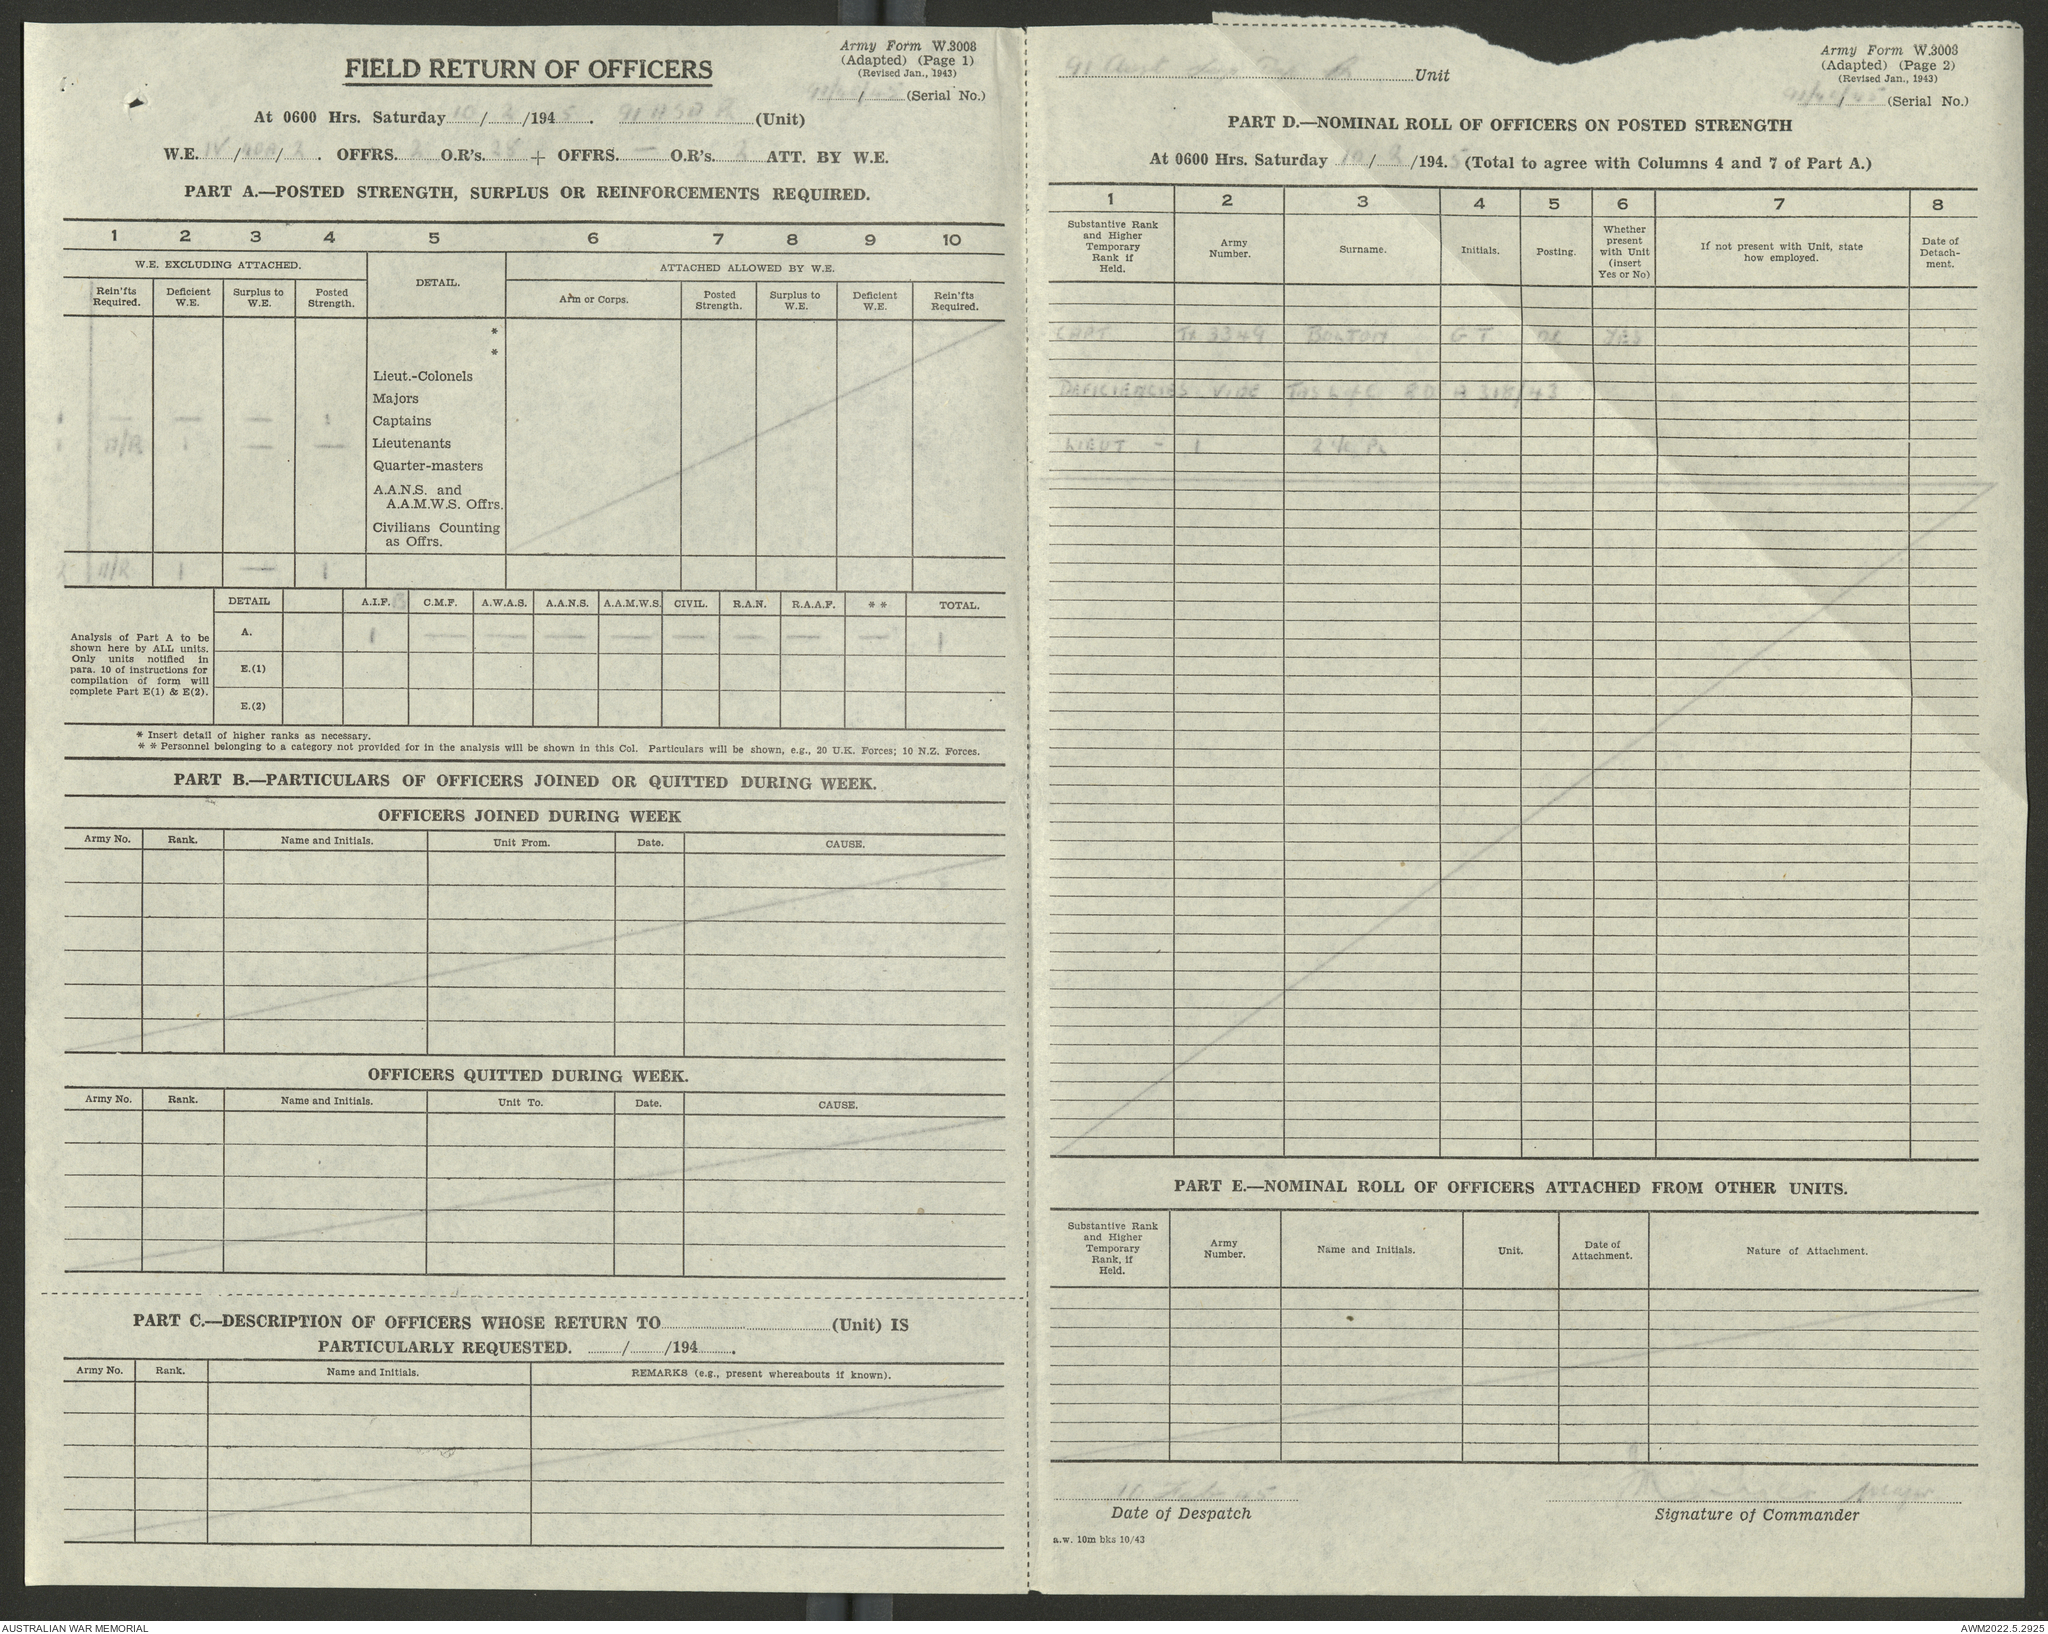 Army Form W.3008
(Adapted) (Page 1)
(Revised Jan., 1943)
FIELD RETURN OF OFFICERS
(Serial No.)
At 0600 Hrs. Saturday 10/2/1945. 91 ASD P (Unit)
W.E. IV / / 2. OFFRS. 2 O.R's. 28 + OFFRS. — O.R's. 2 ATT. BY W.E.
PART A.—POSTED STRENGTH, SURPLUS OR REINFORCEMENTS REQUIRED.
1 2 3 4 5 6 7 8 9 10
W.E. EXCLUDING ATTACHED. DETAIL. ATTACHED ALLOWED BY W.E.
Rein'fts Required. Deficient W.E. Surplus to W.E. Posted Strength. Arm or Corps. Posted Strength. Surplus to W.E. Deficient W.E. Rein'fts Required.
*
*
Lieut.-Colonels
Majors
1 — — — 1 Captains
1 N/R 1 — — Lieutenants
Quarter-masters
A.A.N.S. and
A.A.M.W.S. Offrs.
Civilians Counting
as Offrs.
2 N/R 1 — 1
DETAIL A.I.F. C.M.F. A.W.A.S. A.A.N.S. A.A.M.W.S. CIVIL. R.A.N. R.A.A.F. * * TOTAL.
Analysis of Part A to be
shown here by ALL units.
Only units notified in
para. 10 of instructions for
compilation of form will
complete Part E(1) & E(2).
A. 1 — — — — — — — — 1
E.(1)
E.(2)
* Insert detail of higher ranks as necessary.
* * Personnel belonging to a category not provided for in the analysis will be shown in this Col. Particulars will be shown, e.g., 20 U.K. Forces; 10 N.Z. Forces.
PART B.—PARTICULARS OF OFFICERS JOINED OR QUITTED DURING WEEK.
OFFICERS JOINED DURING WEEK
Army No. Rank. Name and Initials. Unit From. Date. CAUSE.
OFFICERS QUITTED DURING WEEK.
Army No. Rank. Name and Initials. Unit To. Date. CAUSE.
PART C.—DESCRIPTION OF OFFICERS WHOSE RETURN TO (Unit) IS
PARTICULARLY REQUESTED. / /194 .
Army No. Rank. Name and Initials. REMARKS (e.g., present whereabouts if known).
Army Form W.3008
(Adapted) (Page 2)
(Revised Jan., 1943)
91 Aust Unit
(Serial No.)
PART D.—NOMINAL ROLL OF OFFICERS ON POSTED STRENGTH
At 0600 Hrs. Saturday 10/2/1945 (Total to agree with Columns 4 and 7 of Part A.)
1 2 3 4 5 6 7 8
Substantive Rank and Higher Temporary Rank if Held. Army Number. Surname. Initials. Posting. Whether present with Unit (insert Yes or No) If not present with Unit, state how employed. Date of Detachment.
CAPT TX 3349 BOLTON G T OC YES
DEFICIENCIES VIDE TAS L of C RO A 318/43
LIEUT - 1
PART E.—NOMINAL ROLL OF OFFICERS ATTACHED FROM OTHER UNITS.
Substantive Rank and Higher Temporary Rank, if Held. Army Number. Name and Initials. Unit. Date of Attachment. Nature of Attachment.
Feb 45
Major
Date of Despatch
Signature of Commander
a.w. 10m bks 10/43
AUSTRALIAN WAR MEMORIAL
AWM2022.5.2925